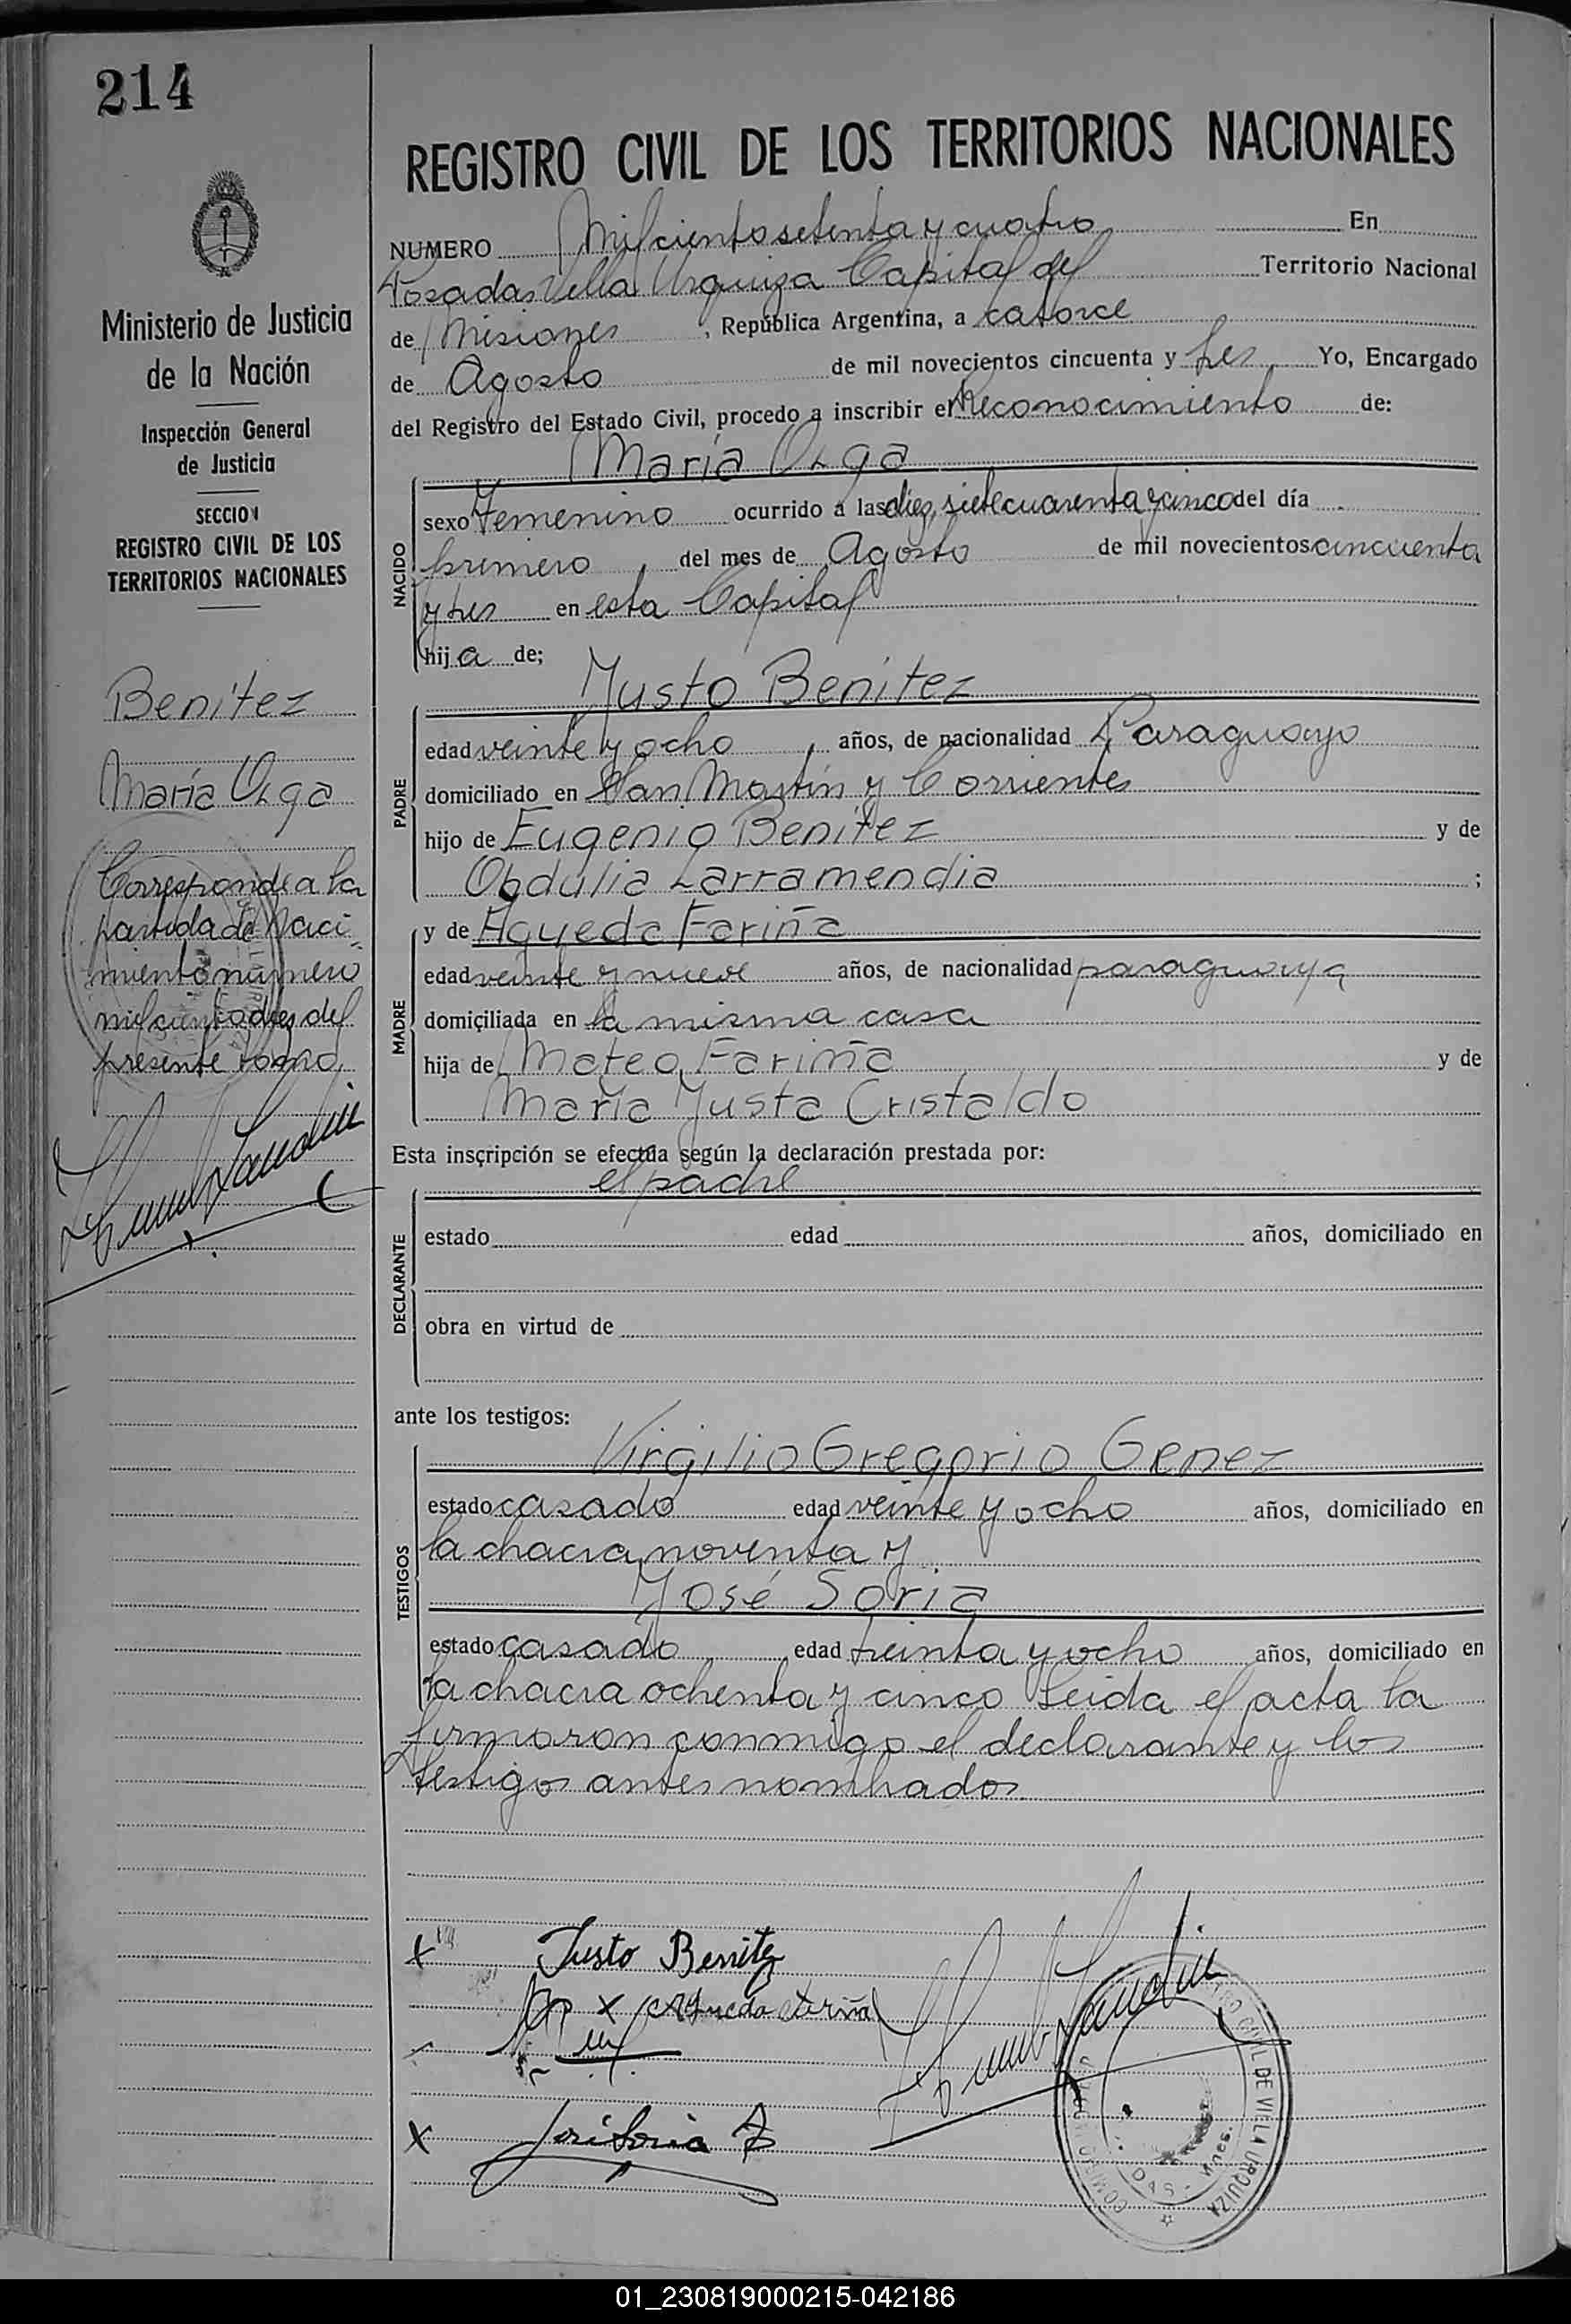 214
REGISTRO CIVIL DE LOS TERRITORIOS NACIONALES
NUMERO Mil ciento setenta y cuatro En
Posadas Villa Urquiza Capital del Territorio Nacional
de Misiones, República Argentina, a catorce
de Agosto de mil novecientos cincuenta y tres Yo, Encargado
del Registro del Estado Civil, procedo a inscribir el Reconocimiento de:
María Olga
NACIDO
sexo Femenino ocurrido a las diez, siete cuarenta y cinco del día
primero del mes de Agosto de mil novecientos cincuenta
y tres en esta Capital
hija de;
Justo Benítez
PADRE
edad veinte y ocho años, de nacionalidad Paraguayo
domiciliado en San Martín y Corrientes
hijo de Eugenio Benítez y de
Obdulia Larramendia ;
MADRE
y de Agueda Fariña
edad veinte y nueve años, de nacionalidad paraguaya
domiciliada en la misma casa
hija de Mateo Fariña y de
María Justa Cristaldo
Esta inscripción se efectúa según la declaración prestada por:
el padre
DECLARANTE
estado edad años, domiciliado en
obra en virtud de
ante los testigos:
Virgilio Gregorio Genez
TESTIGOS
estado casado edad veinte y ocho años, domiciliado en
la chacra noventa y
José Soria
estado casado edad treinta y ocho años, domiciliado en
la chacra ochenta y cinco Leida el acta la
firmaron conmigo el declarante y los
testigos antes nombrados
Justo Benitez
Agueda Fariña
José Soria
REGISTRO CIVIL DE VILLA URQUIZA
Ministerio de Justicia
de la Nación
Inspección General
de Justicia
SECCION
REGISTRO CIVIL DE LOS
TERRITORIOS NACIONALES
Benítez
María Olga
Corresponde a la
partida de Naci-
miento número
mil ciento dies del
presente tomo
01_230819000215-042186